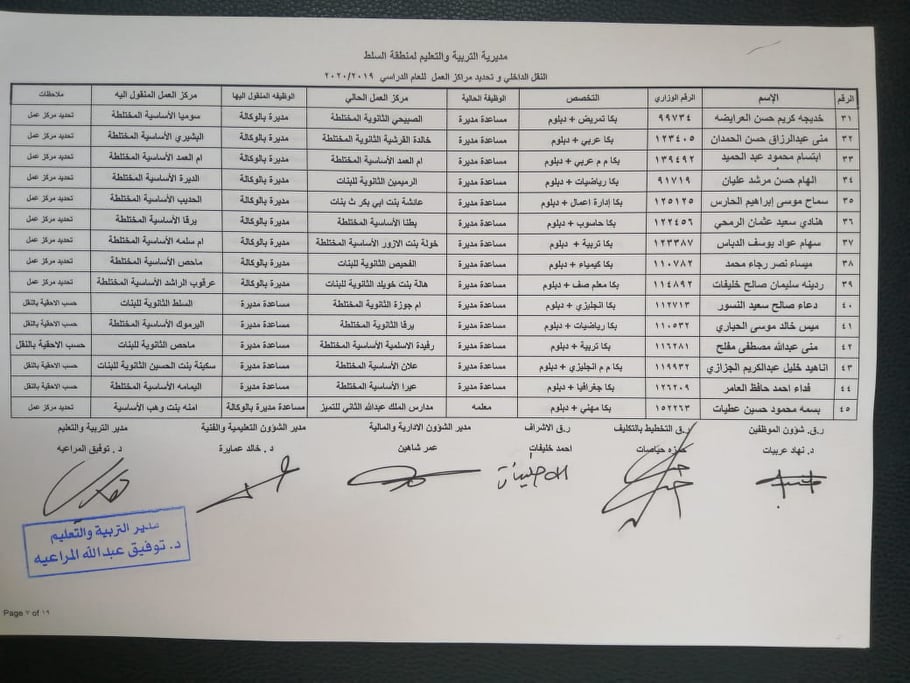 مديرية التربية والتعليم لمنطقة السلط
النقل الداخلي و تحديد مراكز العمل للعام الدراسي ٢٠٢٠/٢٠١٩
الرقم الإسم الرقم الوزاري التخصص الوظيفة الحالية مركز العمل الحالي الوظيفه المنقول اليها مركز العمل المنقول اليه ملاحظات
٣١ خديجه كريم حسن العرايضه ٩٩٧٣٤ بكا تمريض + دبلوم مساعدة مديرة الصبيحي الثانوية المختلطة مديرة بالوكالة سوميا الأساسية المختلطة تحديد مركز عمل
٣٢ منى عبدالرزاق حسن الحمدان ١٢٣٤٠٥ بكا عربي + دبلوم مساعدة مديرة خالدة القرشية الثانوية المختلطة مديرة بالوكالة البشيري الأساسية المختلطة تحديد مركز عمل
٣٣ ابتسام محمود عبد الحميد ١٣٩٤٩٢ بكا م م عربي + دبلوم مساعدة مديرة ام العمد الأساسية المختلطة مديرة بالوكالة ام العمد الأساسية المختلطة تحديد مركز عمل
٣٤ الهام حسن مرشد عليان ٩١٧١٩ بكا رياضيات + دبلوم مساعدة مديرة الرميمين الثانوية للبنات مديرة بالوكالة الديرة الأساسية المختلطة تحديد مركز عمل
٣٥ سماح موسى إبراهيم الحارس ١٢٥١٢٥ بكا إدارة اعمال + دبلوم مساعدة مديرة عائشة بنت ابي بكر ث بنات مديرة بالوكالة الحديب الأساسية المختلطة تحديد مركز عمل
٣٦ هنادي سعيد عثمان الرمحي ١٢٢٤٥٦ بكا حاسوب + دبلوم مساعدة مديرة بطنا الأساسية المختلطة مديرة بالوكالة يرقا الأساسية المختلطة تحديد مركز عمل
٣٧ سهام عواد يوسف الدباس ١٢٣٣٨٧ بكا تربية + دبلوم مساعدة مديرة خولة بنت الازور الأساسية المختلطة مديرة بالوكالة ام سلمه الأساسية المختلطة تحديد مركز عمل
٣٨ ميساء نصر رجاء محمد ١١٠٧٨٢ بكا كيمياء + دبلوم مساعدة مديرة الفحيص الثانوية للبنات مديرة بالوكالة ماحص الأساسية المختلطة تحديد مركز عمل
٣٩ ردينه سليمان صالح خليفات ١١٤٨٩٢ بكا معلم صف + دبلوم مساعدة مديرة هالة بنت خويلد الثانوية للبنات مديرة بالوكالة عرقوب الراشد الأساسية المختلطة تحديد مركز عمل
٤٠ دعاء صالح سعيد النسور ١١٢٧١٣ بكا انجليزي + دبلوم مساعدة مديرة ام جوزة الثانوية المختلطة مساعدة مديرة السلط الثانوية للبنات حسب الاحقية بالنقل
٤١ ميس خالد موسى الحياري ١١٠٥٣٢ بكا رياضيات + دبلوم مساعدة مديرة يرقا الثانوية المختلطة مساعدة مديرة اليرموك الأساسية المختلطة حسب الاحقية بالنقل
٤٢ منى عبدالله مصطفى مفلح ١١٦٢٨١ بكا تربية + دبلوم مساعدة مديرة رفيدة الاسلمية الأساسية المختلطة مساعدة مديرة ماحص الثانوية للبنات حسب الاحقية بالنقل
٤٣ اناهيد خليل عبدالكريم الجزازي ١١٩٩٣٢ بكا م م انجليزي + دبلوم مساعدة مديرة علان الأساسية المختلطة مساعدة مديرة سكينة بنت الحسين الثانوية للبنات حسب الاحقية بالنقل
٤٤ فداء احمد حافظ العامر ١٢٦٢٠٩ بكا جغرافيا + دبلوم مساعدة مديرة عيرا الأساسية المختلطة مساعدة مديرة اليمامه الأساسية المختلطة حسب الاحقية بالنقل
٤٥ بسمه محمود حسين عطيات ١٥٢٢٦٣ بكا مهني + دبلوم معلمه مدارس الملك عبدالله الثاني للتميز مساعدة مديرة بالوكالة امنه بنت وهب الأساسية تحديد مركز عمل
ر.ق. شؤون الموظفين ر.ق التخطيط بالتكليف ر.ق الاشراف مدير الشؤون الادارية والمالية مدير الشؤون التعليمية والفنية مدير التربية والتعليم
د. نهاد عربيات حمزه حياصات احمد خليفات عمر شاهين د. خالد عمايرة د. توفيق المراعيه
مدير التربية والتعليم
د. توفيق عبدالله المراعيه
Page ٢ of ١٩